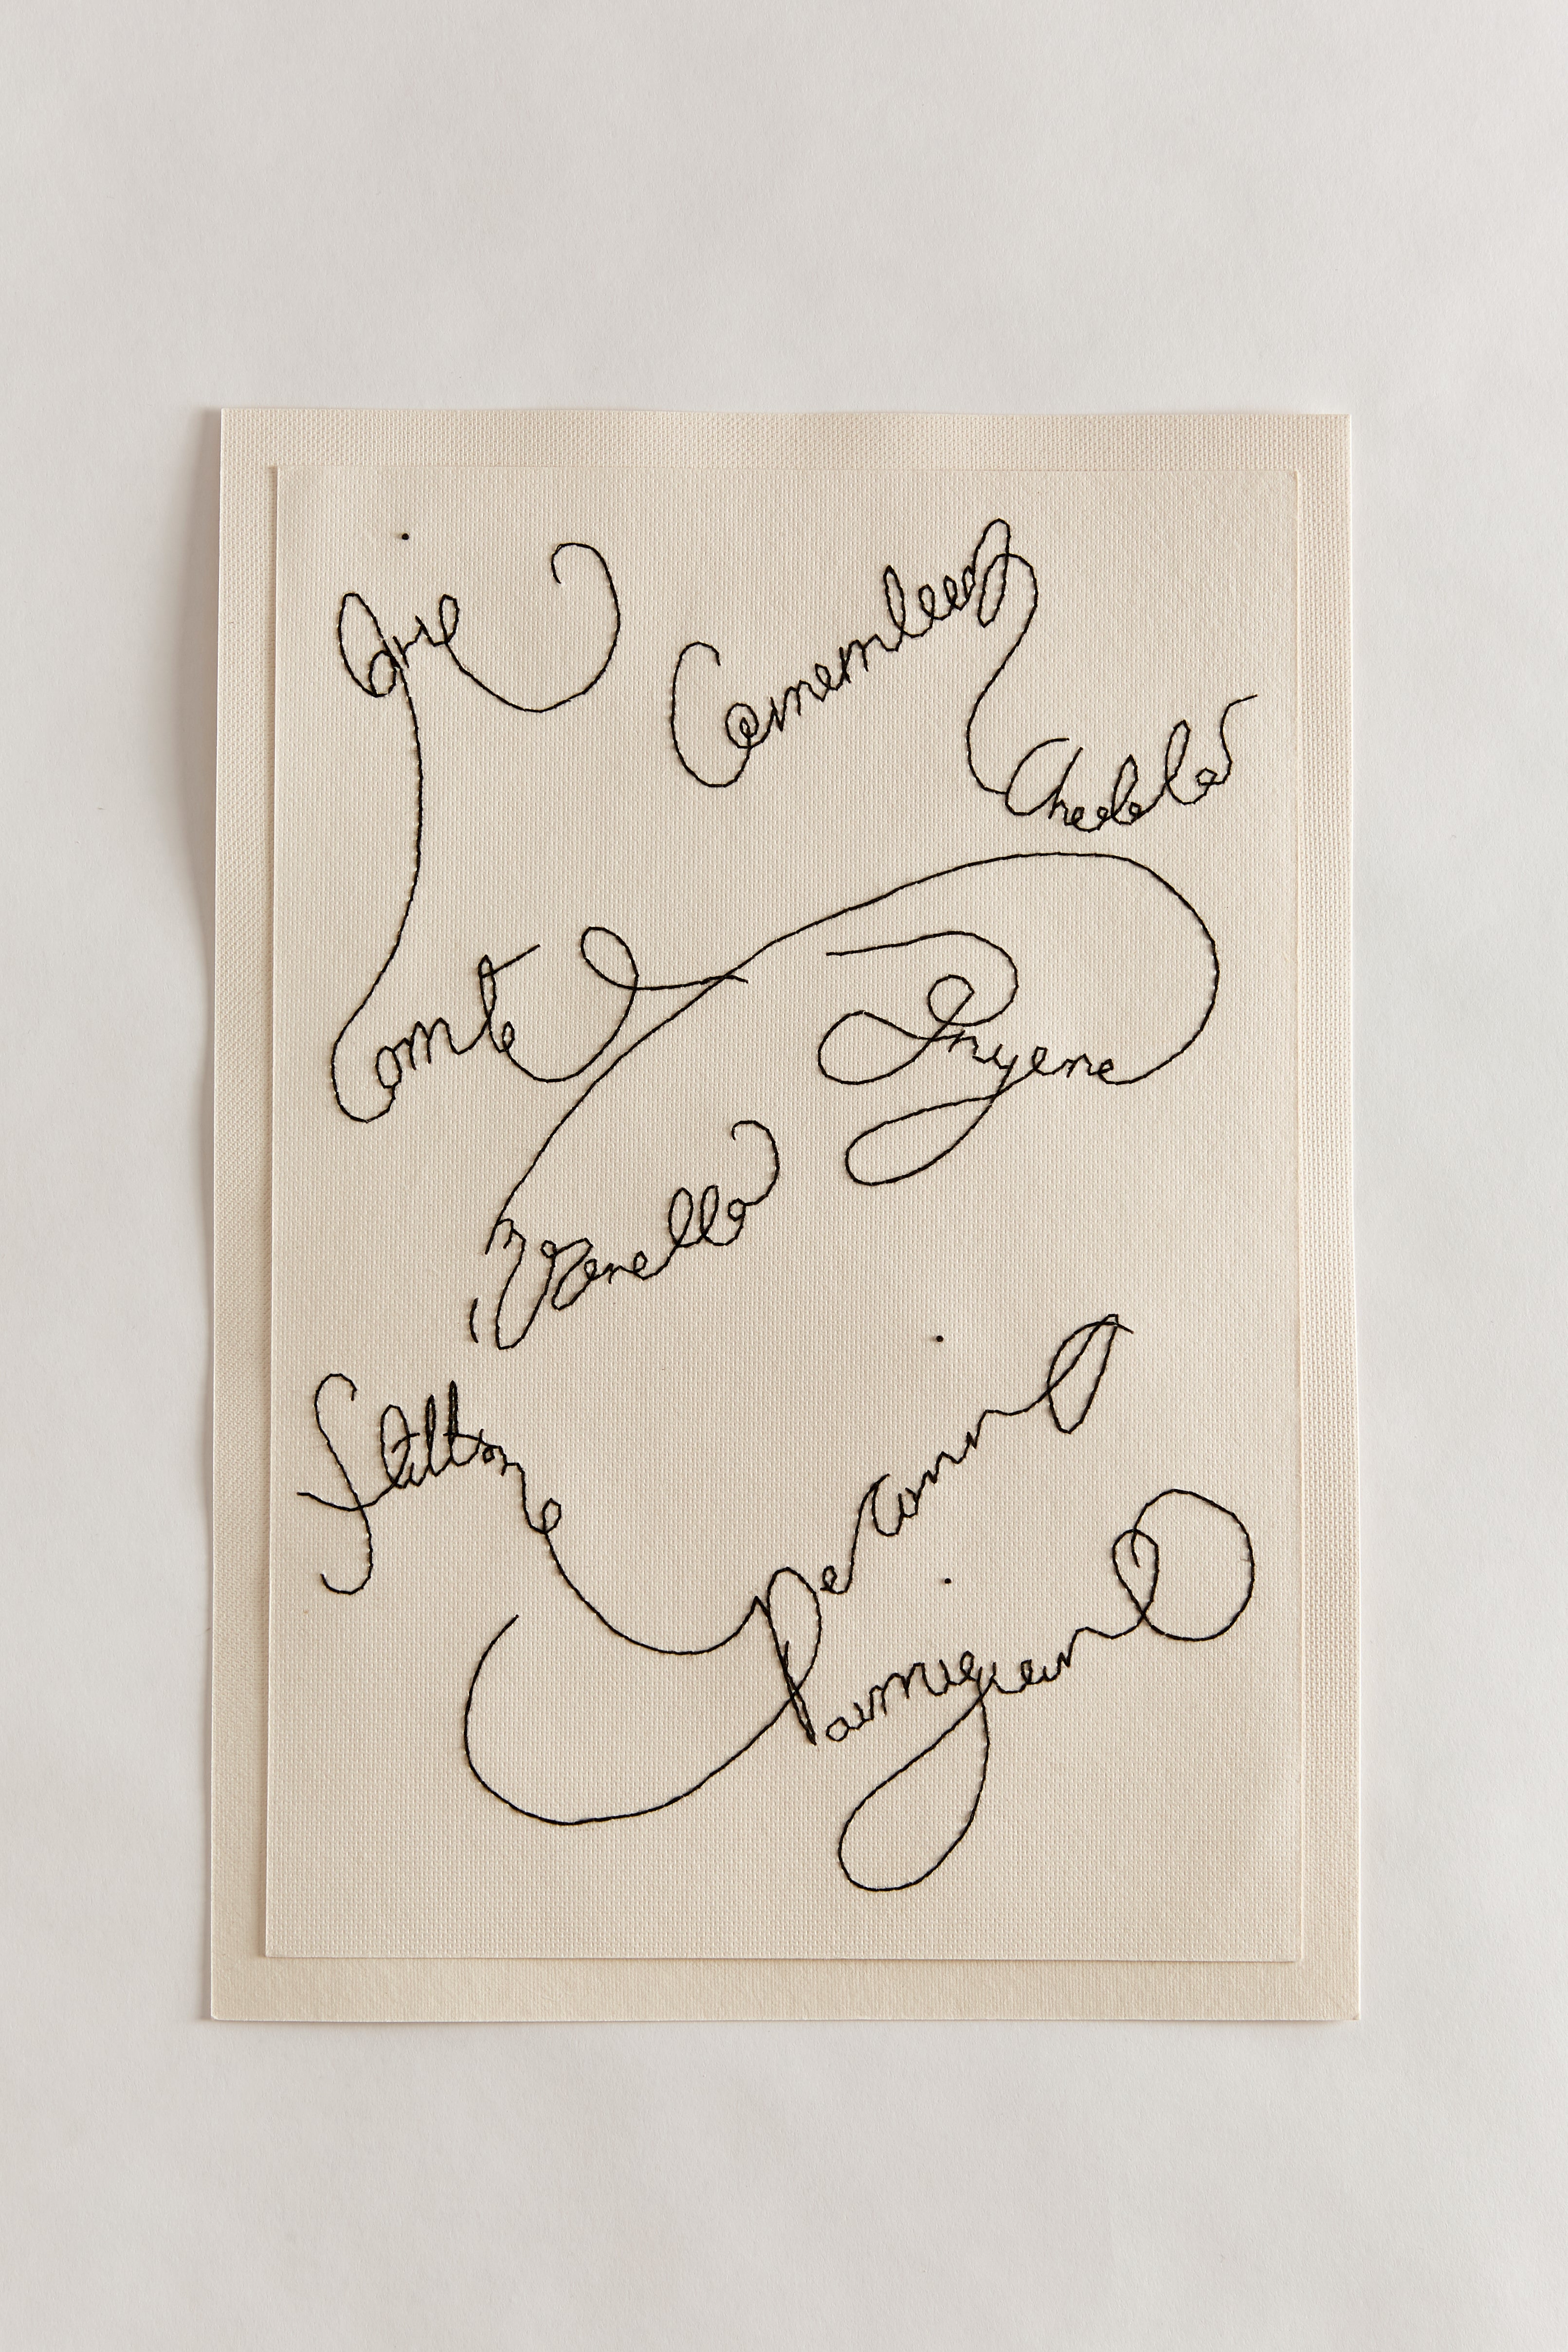 Brie
Camembert
Chedda
Comte
Gruyere
Stilton
Pecorino
Parmigiano